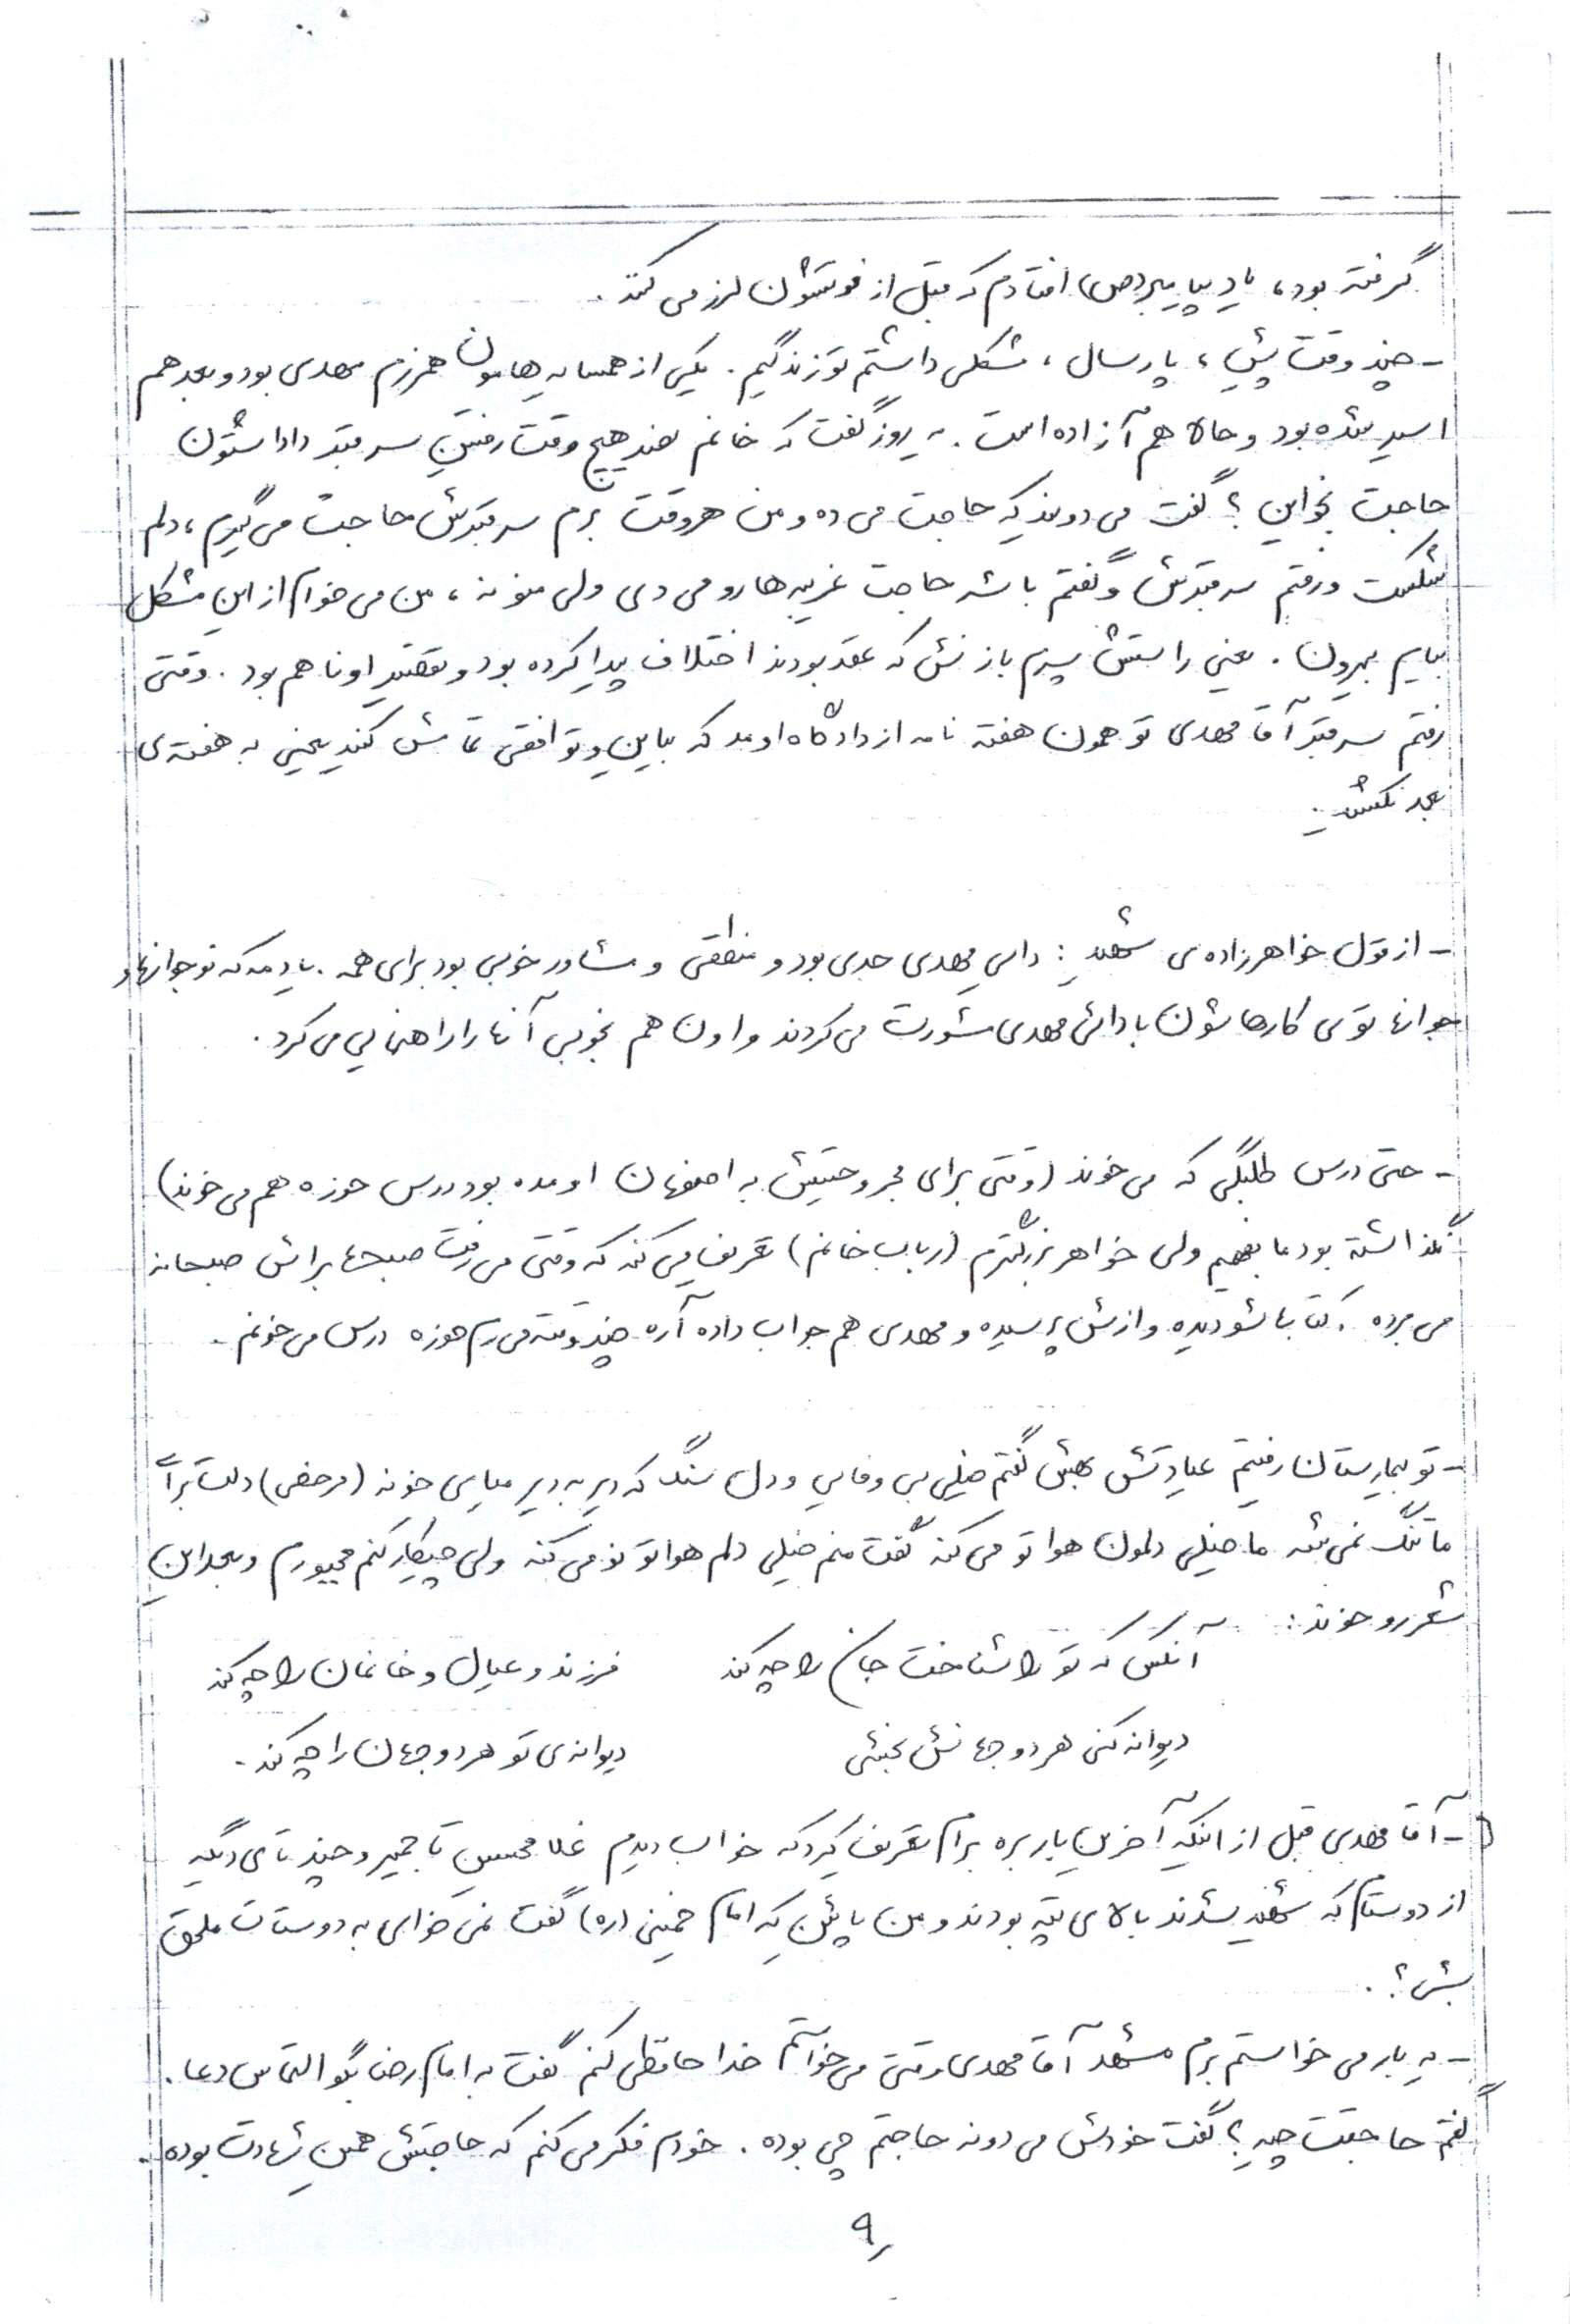 گرفته بود، یاد پیامبر(ص) افتادم که قبل از فوتشون لرز می کنند.
- چند وقت پیش، پارسال، مشکلی داشتم تو زندگیم. یکی از همسایه هامون همرزم مهدی بود و بعد هم
اسیر شده بود و حالا هم آزاده است. یه روز گفت که خانم هیچ وقت رفتین سر قبر داداشتون
حاجت بخواین؟ گفت می دونید که حاجت می ده و من هر وقت برم سر قبرش حاجت می گیرم، دلم
شکست و رفتم سر قبرش و گفتم باشه حاجت غریبه ها رو می دی ولی منو نه، من می خوام از این مشکل
بیایم بیرون. یعنی راستش پسرم با زنش که عقد بودند اختلاف پیدا کرده بود و تقصیر اونا هم بود. وقتی
رفتم سر قبر آقا مهدی تو همون هفته نامه از دادگاه اومد که بیاین و توافقی تمامش کنید یعنی به هفته ی
بعد نکشید.
- از قول خواهرزاده ی شهید: دایی مهدی جدی بود و منطقی و مشاور خوبی بود برای همه. یادمه که نوجوانها و
جوانها توی کارهاشون با دائی مهدی مشورت می کردند و اون هم بخوبی آنها را راهنمایی می کرد.
- حتی درس طلبگی که می خوند (وقتی برای مجروحیتش به اصفهان اومده بود درس حوزه هم می خوند)
نگذاشته بود ما بفهمیم ولی خواهر بزرگترم (رباب خانم) تعریف می کنه که وقتی می رفت صبحها براش صبحانه
می برده. کتاباشو دیده و ازش پرسیده و مهدی هم جواب داده آره چند وقته می رم حوزه درس می خونم.
- تو بیمارستان رفتیم عیادتش بهش گفتم خیلی بی وفایی و دل سنگ که دیر به دیر میای خونه (مرخصی) دلت برا
ما تنگ نمی شه ما خیلی دلمون هواتو می کنه گفت منم خیلی دلم هواتونو می کنه ولی چیکار کنم مجبورم و بعد این
شعر رو خوند:
آنکس که تو را شناخت جان را چه کند فرزند و عیال و خانمان را چه کند
دیوانه کنی هر دو جهانش بخشی دیوانه ی تو هر دو جهان را چه کند.
- آقا مهدی قبل از اینکه آخرین بار بره برام تعریف کرد که خواب دیدم غلامحسین تاجمیر و چند تای دیگه
از دوستام که شهید شدند بالای تپه بودند و من پائین که امام خمینی (ره) گفت نمی خوای به دوستات ملحق
بشی؟.
- یه بار می خواستم برم مشهد آقا مهدی وقتی می خواستم خداحافظی کنم گفت به امام رضا بگو التماس دعا.
گفتم حاجتت چیه؟ گفت خودش می دونه حاجتم چی بوده. خودم فکر می کنم که حاجتش همین شهادت بوده.
۹